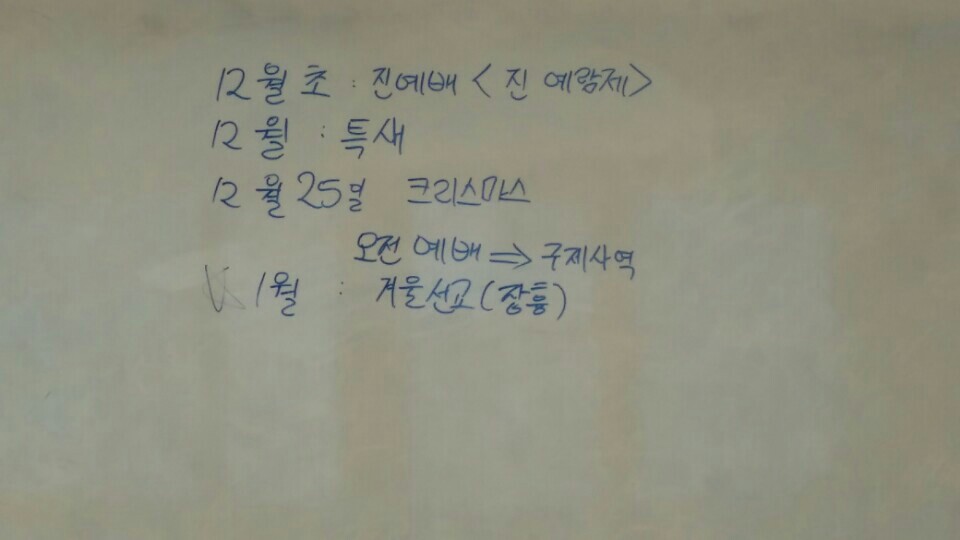 12월 초 : 진예배 < 진 예람제>
12월 : 특새
12월 25일 크리스마스
오전 예배 ⇒ 구제사역
1월 : 겨울선교 (장흥)